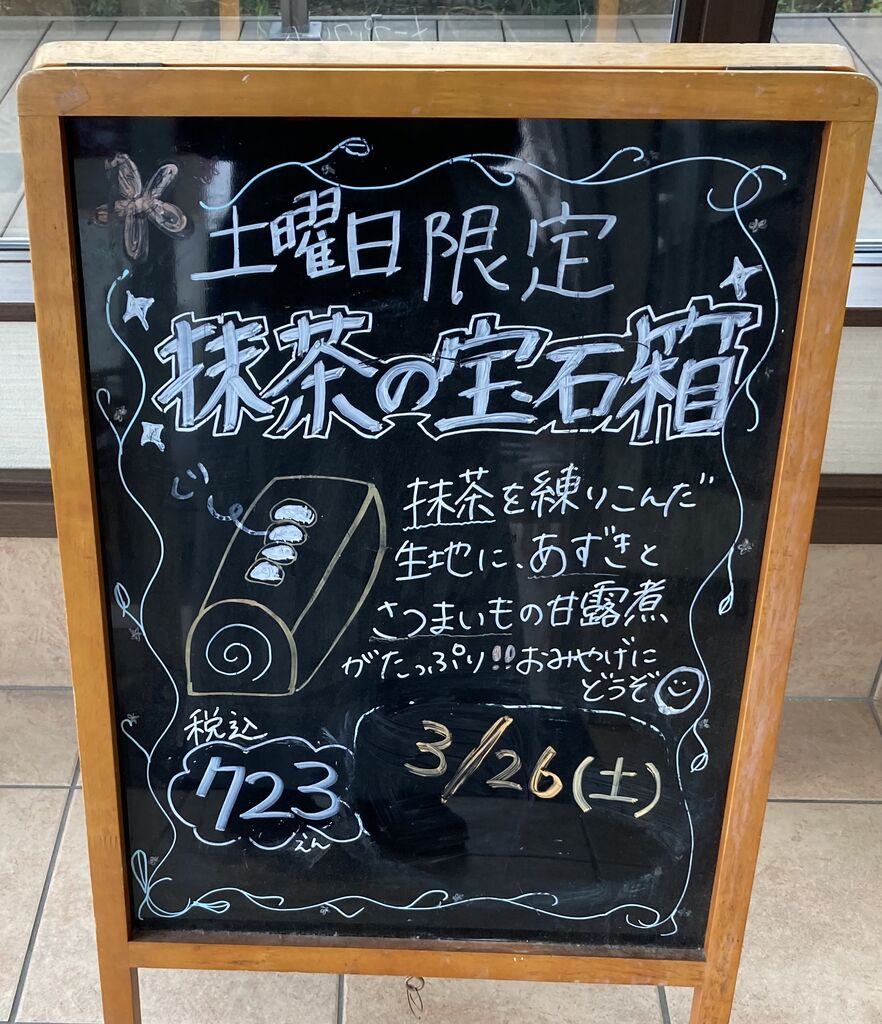 土曜日限定
抹茶の宝石箱
抹茶を練りこんだ
生地に、あずきと
さつまいもの甘露煮
がたっぷり!!おみやげに
どうぞ
税込
723
えん
3/26(土)